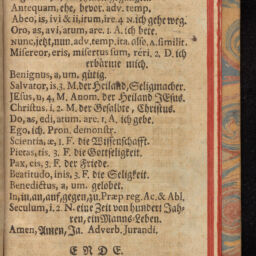 Antequam, ehe, bevor. adv. temp.
Abeo, is, ivi & ii, itum, ire. 4 n. ich gehe weg.
Oro, as, avi, atum, are. 1. A. ich bete.
Nunc, jetzt, nun. adv. temp. ita, also. a. similit.
Misereor, eris, misertus sum, reri. 2. D. ich
erbärme mich.
Benignus, a, um. gütig.
Salvator, is. 3. M. der Heiland, Seligmacher.
JEsus, u, 4, M. Anom. der Heiland JEsus.
Christus, i. 2. M. der Gesalbte, Christus.
Do, as, edi, atum. are. 1. A, ich gebe.
Ego, ich. Pron. demonstr.
Scientia, æ, 1. F. die Wissenschafft.
Pietas, tis. 3. F. die Gottseligkeit.
Pax, cis, 3. F. der Friede.
Beatitudo, inis, 3. F. die Seligkeit.
Benedictus, a, um. gelobet.
In, in, an, auf, gegen, zu. Præp. reg. Ac. & Abl.
Seculum, i. 2. N. eine Zeit von hundert Jah-
ren, ein Manns-Leben.
Amen, Amen, Ja. Adverb. Jurandi.
ENDE.